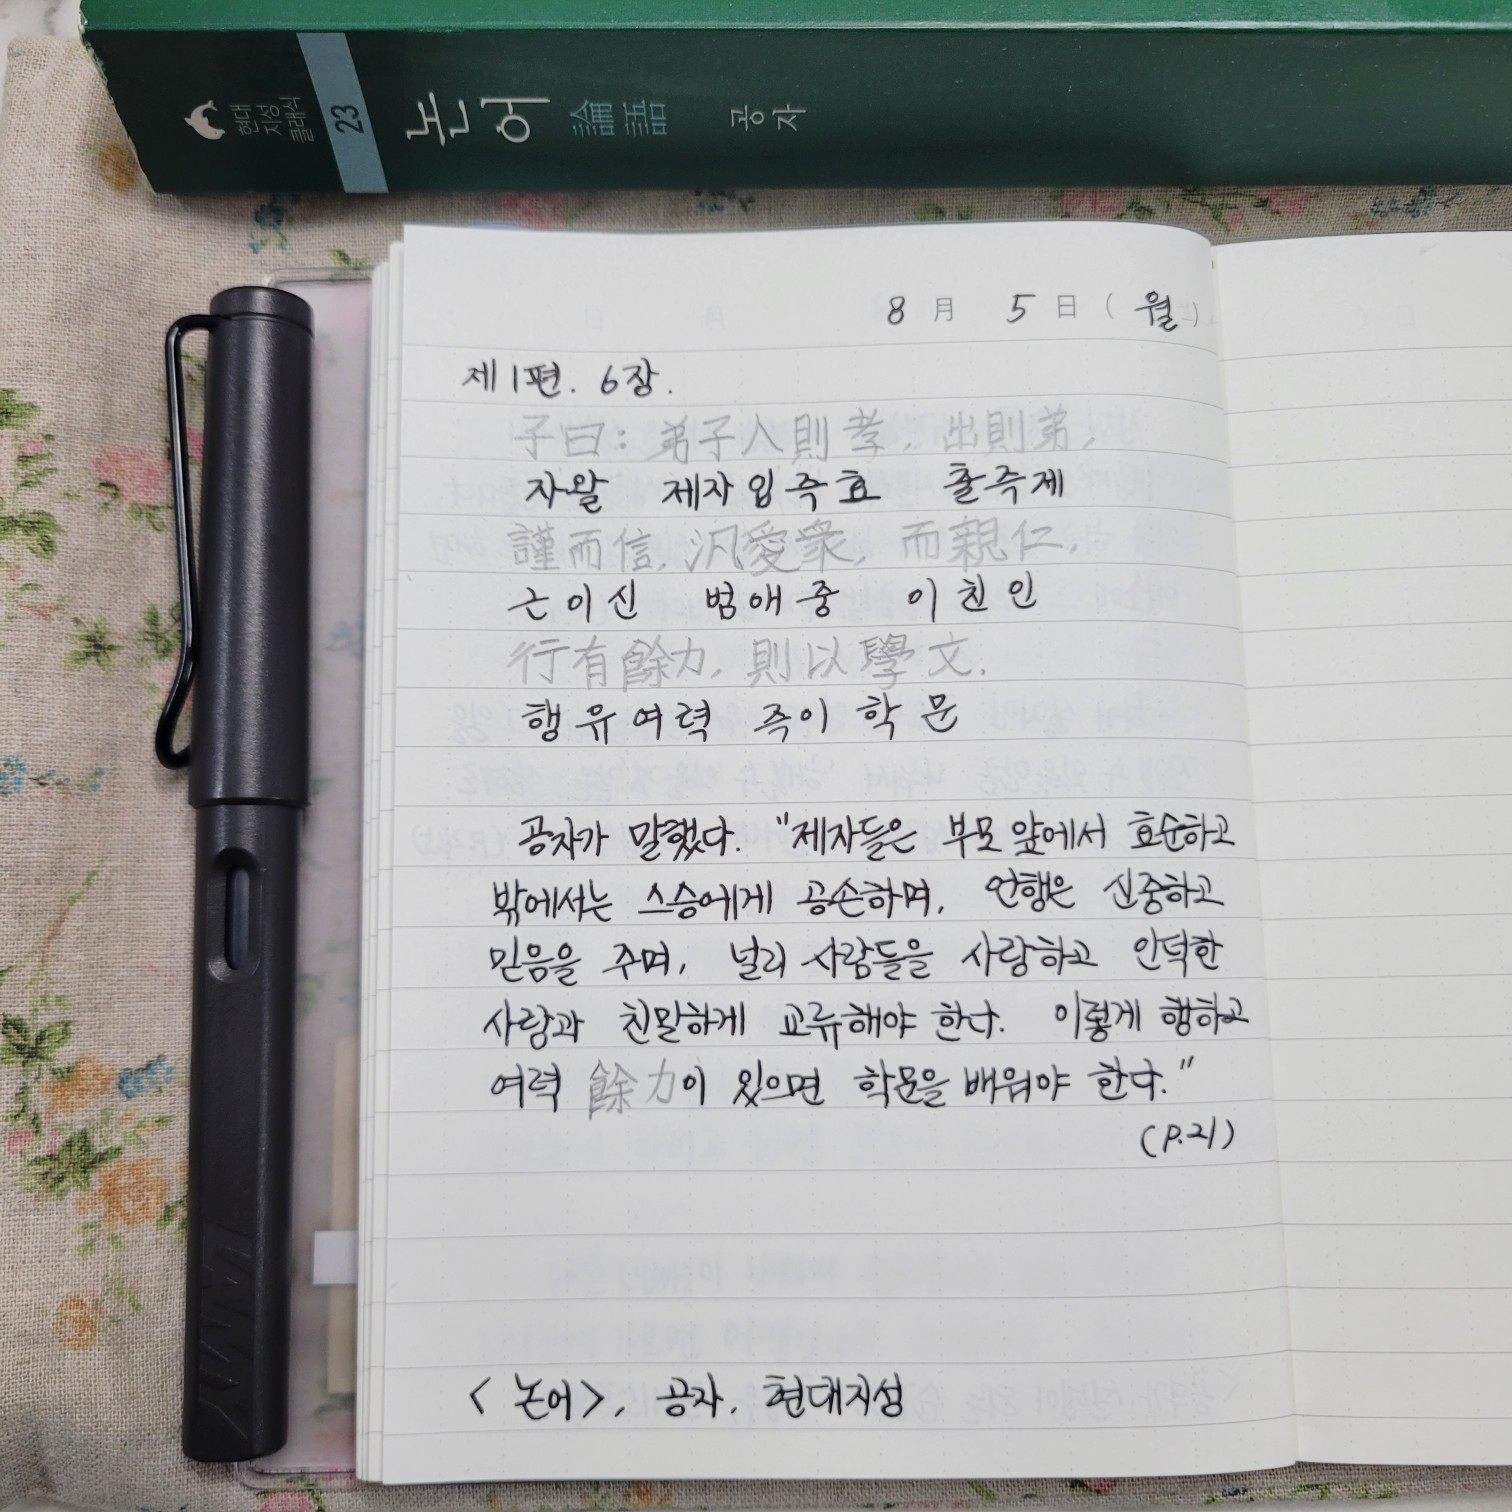 현대
지성
클래식
23
논어 論語 공자
8 月 5 日 (월)
제1편. 6장.
子曰: 弟子入則孝, 出則弟,
자왈 제자입즉효 출즉제
謹而信, 汎愛衆, 而親仁,
근이신 범애중 이친인
行有餘力, 則以學文.
행유여력 즉이학문
공자가 말했다. "제자들은 부모 앞에서 효순하고
밖에서는 스승에게 공손하며, 언행은 신중하고
믿음을 주며, 널리 사람들을 사랑하고 인덕한
사람과 친밀하게 교류해야 한다. 이렇게 행하고
여력 餘力이 있으면 학문을 배워야 한다."
(P.21)
<논어>, 공자, 현대지성
LAMY